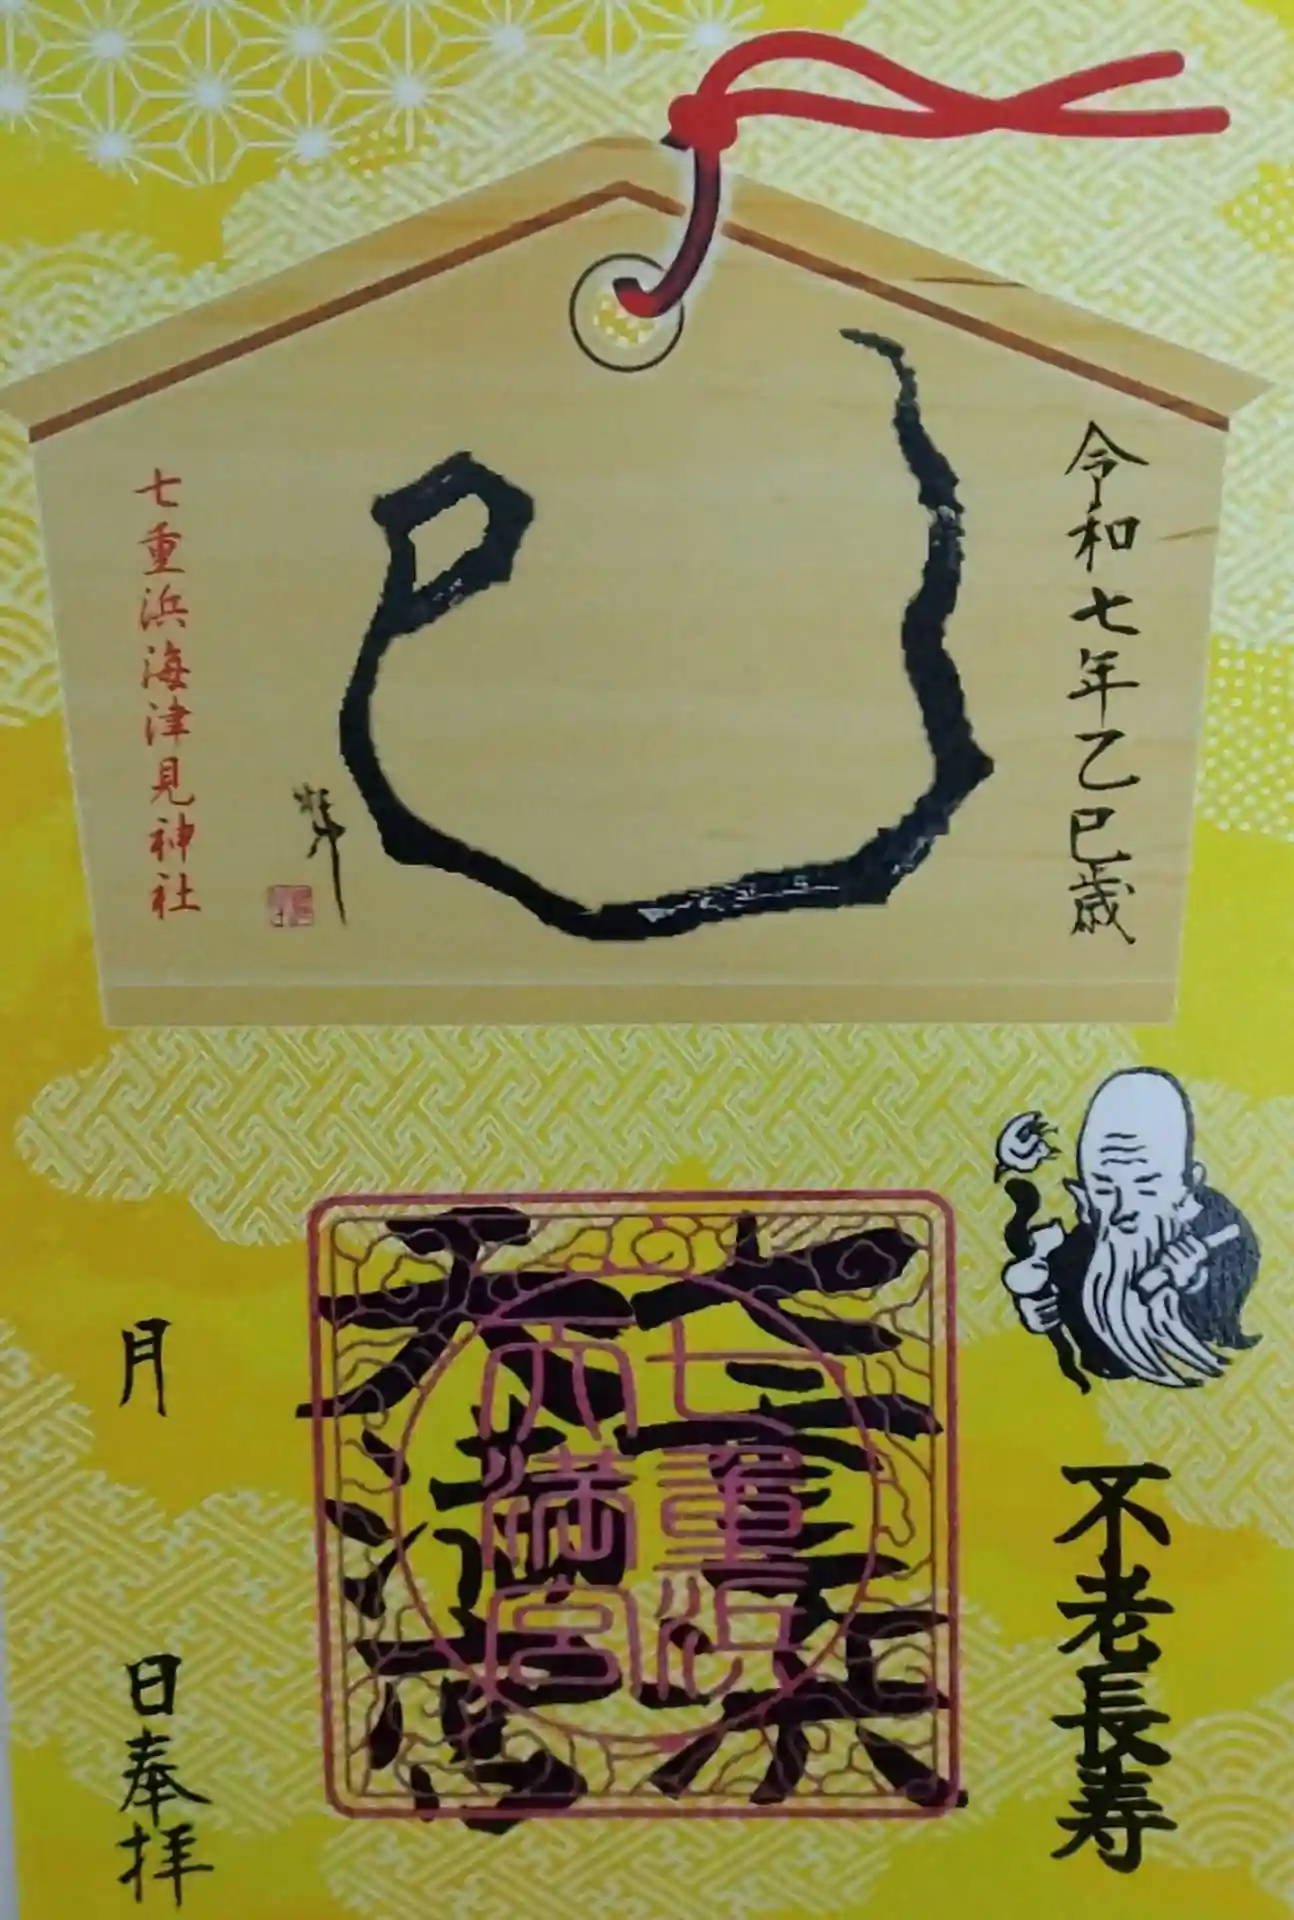 令和七年乙巳歳
巳
七重浜海津見神社
不老長寿
七重浜
天満宮
七重浜
天満宮
月
日奉拝